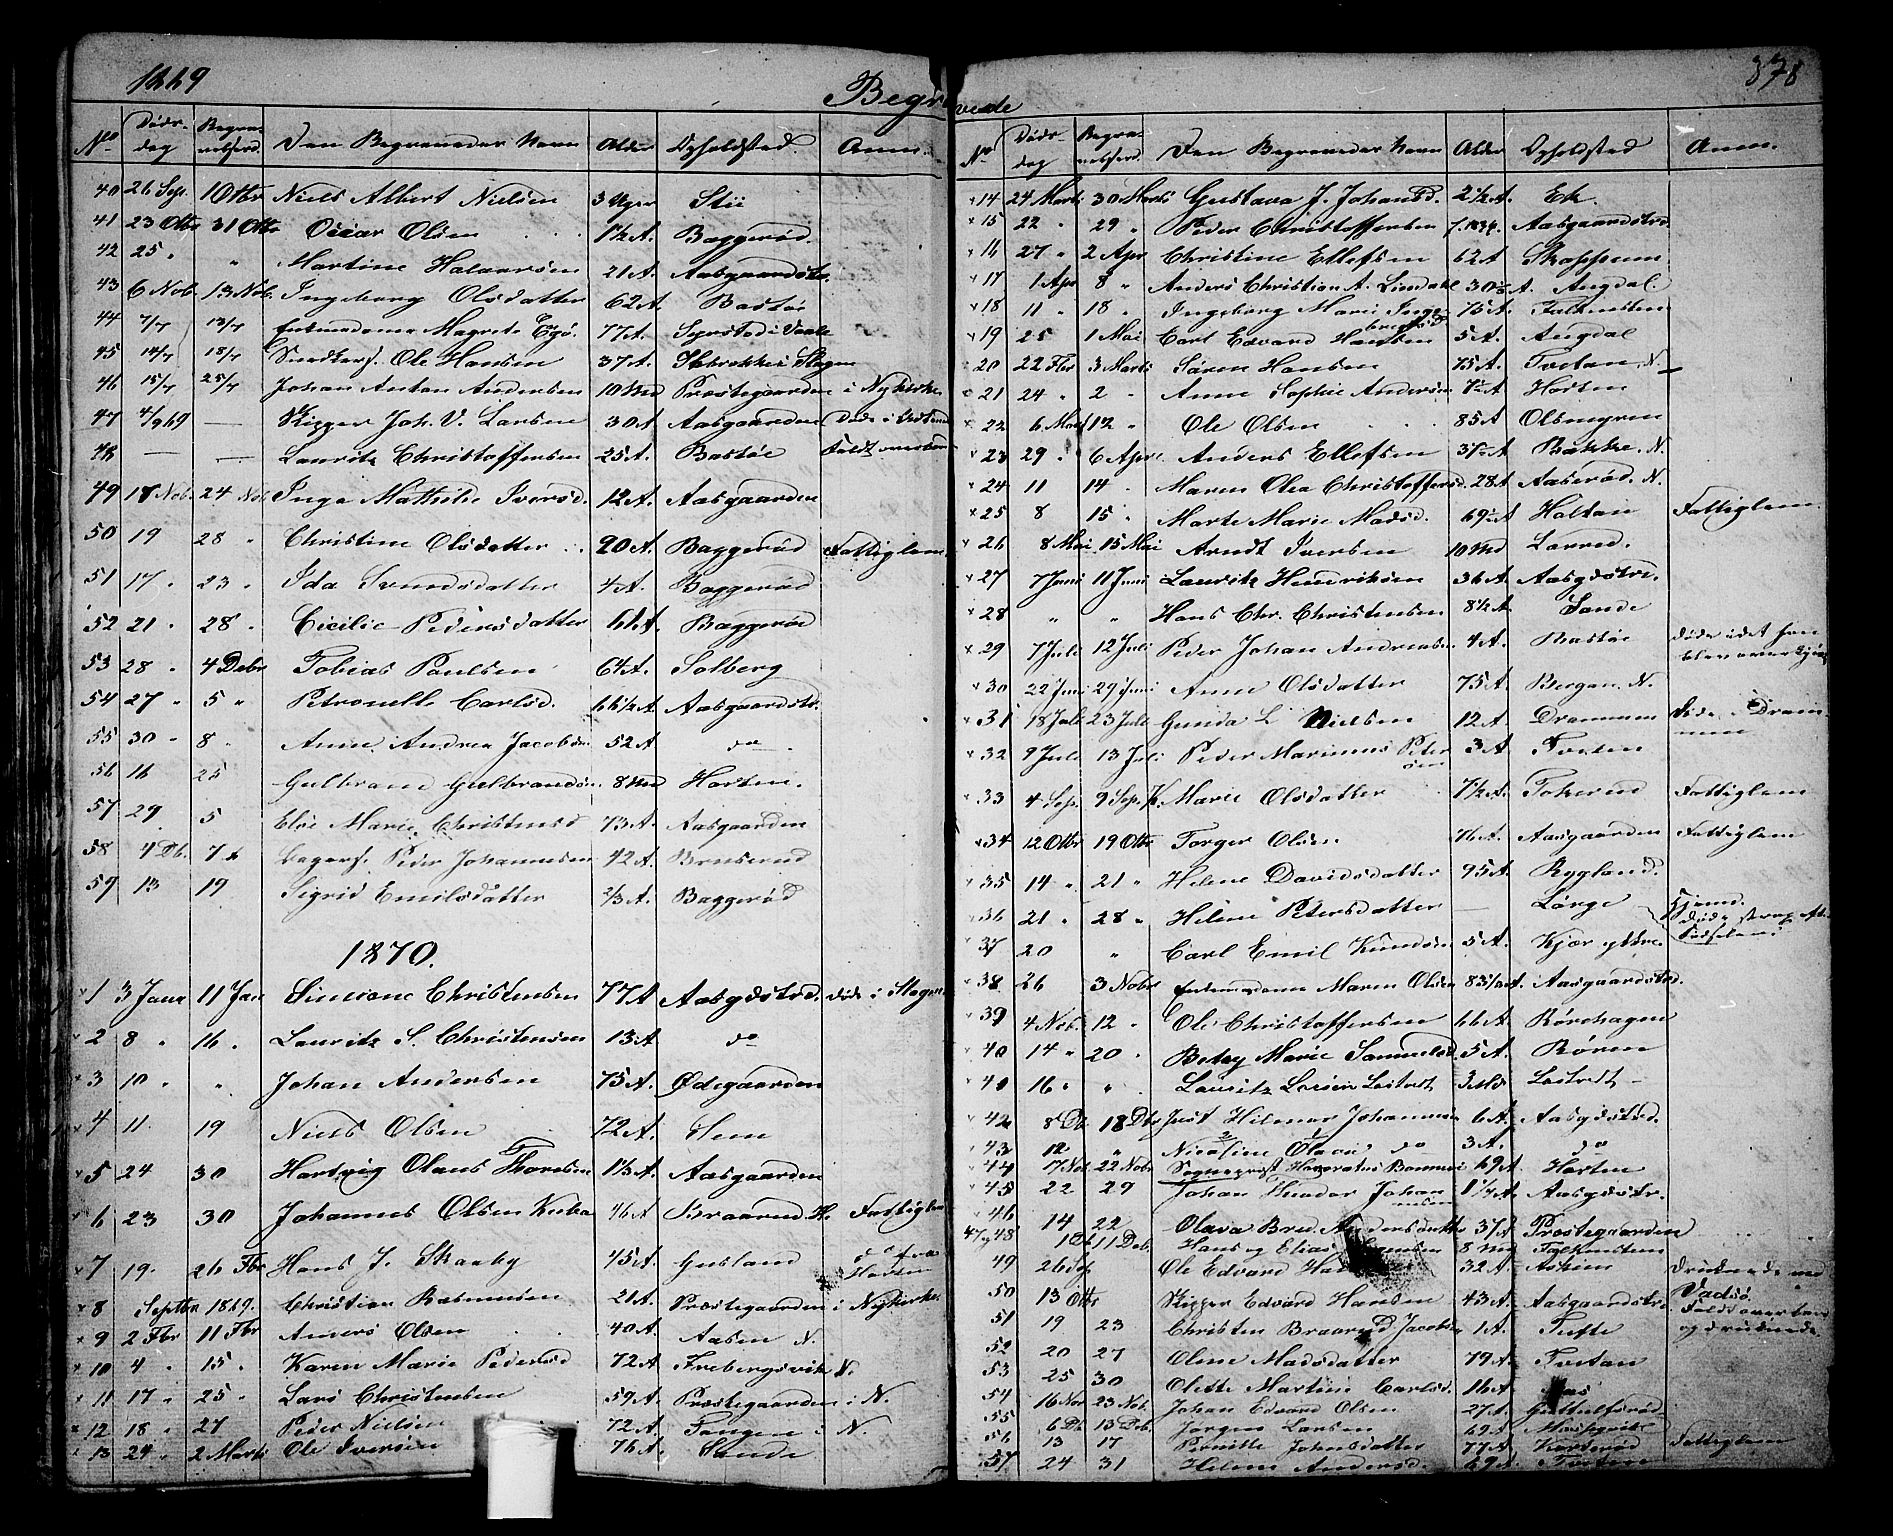 1869
Begravede
378
No Døds-dag Begra-velsesd. Den Begravedes Navn Alder Opholdsted Anm.
40 26 Sep. 1 Otbr Niels Albert Nielsen 3 Uger Stii
41 23 Otbr 31 Otbr Oscar Olsen 1½ A. Baggerød
42 25 " " Martine Halvorsen 21 A. Aasgaardstr.
43 6 Nob. 13 Nob. Ingeborg Olsdatter 62 A. Bastø
44 7/7 13/7 Enkemadame Magrete 77 A.
45 14/7 18/7 Ole Hansen 37 A.
46 15/7 25/7 Johan Anton Andersen 10 Md Præstegaarden i Nykirke
47 4/9 69 — Skipper Joh. V. Larsen 30 A Aasgaarden Døde i
48 — — Lauritz Christoffersen 25 A. Bastøe Faldt overbord
49 18 Nob. 24 Nob. Inga Mathilde Iversd. 12 A. Aasgaarden
50 19 28 " Christine Olsdatter 90 A. Baggerød Fattiglem
51 17 " 23 " Ida Svendsdatter 4 A. Baggerød
52 21 " 28 " Cicilie Pedersdatter 61 A. Baggerød
53 28 " 4 Debr Tobias Paulsen 64 A. Solberg
54 27 " 5 " Petronelle Carlsd. 66½ A. Aasgaardstr.
55 30 " 8 " Anne Andrea Jacobsen 52 A do
56 16 25 Gulbrand Gulbrandsen 8 Md Horten.
57 29 5 Else Marie Christensd 73 A. Aasgaarden
58 4 Db. 7 Peder Johannesen 42 A. Bruserud
59 13 19 Sigrid Emilsdatter 2/3 A. Baggerød
1870.
1 3 Janr 11 Jan Simione Christensen 77 A Aasgdstrd. døde i Slagen
2 8 " 16 " Lauritz S. Christensen 13 A do
3 10 " " Johan Andersen 75 A. Ødegaarden
4 11 19 Niels Olsen 72 A. Hem
5 24 30 Hartvig Olaus Thoresen 1½ A. Aasgaarden
6 23 30 Johannes Olsen 46 A Fattiglem
7 19 26 Fbr Hans J. Skaaby 45 A. Gusland Horten
8 Septbr 1869. Christian Rasmussen 21 A. Præstegaarden i Nykirke
9 2 Fbr 11 Fbr Anders Olsen 40 A. Aasen N.
10 4 " 15 " Karen Marie Pedersd 72 A. Frebergsvik N.
11 17 " 25 " Lars Christensen 59 A. Præstegaarden i N.
12 18 " 27 Peder Nielsen 72 A. Tangen i N.
13 24 " 2 Marts Ole Iversen 76 A. Sande
No Døds-dag Begra-velsesd. Den Begravedes Navn Alder Opholdsted Anm.
14 24 Marts 30 Marts Gustava J. Johansd. 2½ A. Ek
15 22 " 29 " Peder Christoffersen f. 1834. Aasgaardstrd.
16 27 " 2 Apr Christine Ellefsen 62 A Skoppum
17 1 Apr 8 " Anders Christian A. Liendahl 30 A. Augdal.
18 11 " 18 " Ingeborg Marie Inge-bregtsd 75 A. Falkensten
19 25 1 Mai Carl Edvard Hansen 5 A. Augdal
20 22 Fbr 3 Marts Søren Hansen 75 A. Tvetan N.
21 24 " 2 " Anne Sophie Andersen 7 A Horten
22 6 Mars 12 " Ole Olsen 85 A Olsmyren
23 29 " 6 Apr. Anders Ellefsen 37 A Bakke. N.
24 11 14 " Maren Olea Christoffersd. 28 A Aaserød. N.
25 8 15 " Marte Marie Madsd. 69 A Holtan Fattiglem
26 8 Mai 15 Mai Arndt Iversen 10 Md Laverød.
27 7 Juni 11 Juni Lauritz Henriksen 36 A. Aasgdstrd.
28 " " Hans Chr. Christensen 8½ A. Sande
29 7 Juli 12 Juli Peder Johan Andreassen 4 A. Bastøe døde idet han blev overkjørt
30 22 Juni 29 Juni Anne Olsdatter 75 A. Bergan. N.
31 18 Juli 23 Juli Gunda L Nielsen 12 A. Drammen Døde i Drammen
32 9 Juli 13 Juli Peder Marinus Petersen 3 A. Tveten
33 4 Sep. 9 Sep. K. Marie Olsdatter 7½ A. Tokerud Fattiglem
34 12 Otbr 19 Otbr Torger Olsen 76 A. Aasgaarden Fattiglem
35 14 " 21 " Helene Davidsdatter 95 A. Rygland.
36 21 " 28 " Helene Petersdatter — Lørge
37 20 " Carl Emil Knudsen 5 A. Kjær ytre.
38 26 3 Nobr Enkemadame Maren Olsen 83 A. Aasgaardstrd.
39 4 Nob. 12 " Ole Christoffersen 66 A. Rørehagen
40 14 " 20 " Betzy Marie Samuelsd 5 A. Røren
40 16 " " Lauritz Larsen Lostvedt 3 Md. Lostvedt
42 8 Db. 18 Dbr Just Hilmar Johannesen 6 A. Aasgdstrd.
43 12 " Nicoline Olava do 3 A. do
44 7 Nob. 22 Nobr Sogneprest Honoratus Bonnevi 69 A Horten
45 22 29 Johan Johannesen 1¼ A. Aasgdstr.
46 14 22 Olava Andersdatter 37 A. Præstegaarden
47 og 48 1 Db 11 Deb. Hans og Elias 8 Md Falkensten
49 26 Sep Ole Edvard 32 A. Druknede ved Vadsø.
50 13 Otbr Skipper Edvard Hansen 43 A. Aasgaardstr. Faldt overbord og druknede
51 19 23 Christen Braarud Jacobsen 1 A. Tufte
52 20 27 Olene Madsdatter 79 A. Tvetan
53 25 30 Olette Martine Carlsd. 16 A. Aas
54 16 Nov 23 Nob. Johan Edvard Olsen 27 A.
55 6 Db 15 Deb. Jørgen Larsen 69 A.
56 13 17 Pernille Johnsdatter 77 A Fattiglem
57 24 31 Helene Andersd. 69 A Tveten